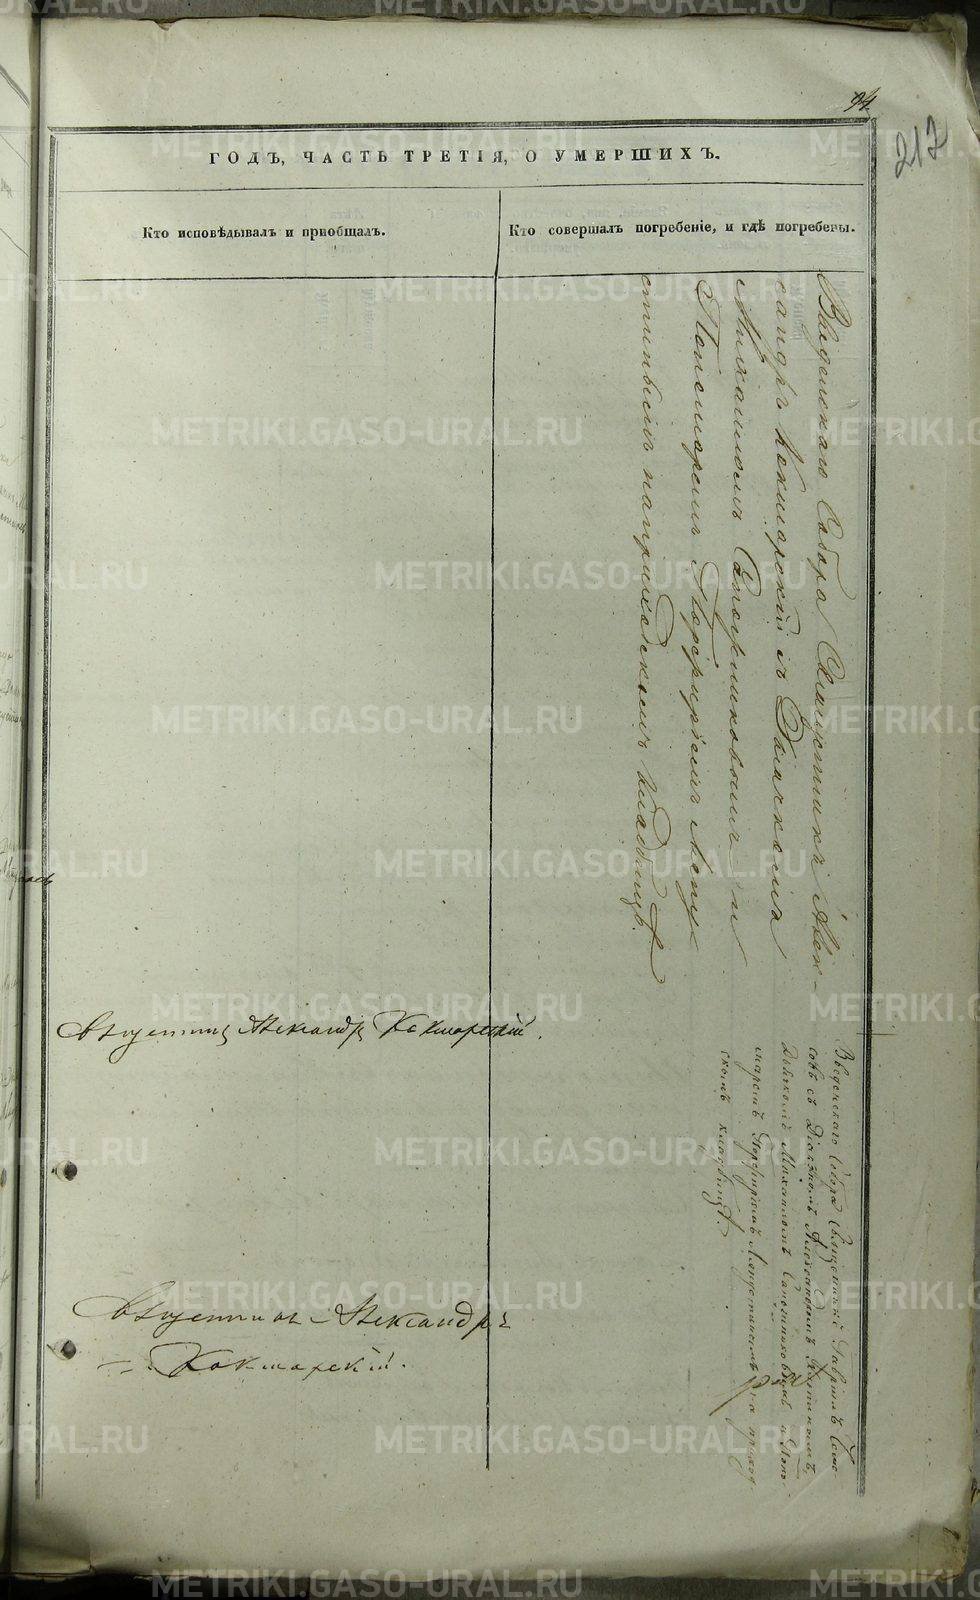 94
217
ГОДЪ, ЧАСТЬ ТРЕТІЯ, О УМЕРШИХЪ.
Кто исповѣдывалъ и пріобщалъ.
Кто совершалъ погребеніе, и гдѣ погребены.
Введенскаго Собора Священникъ Алек-
сандръ Кокшарскій съ Дьячкомъ
Михаиломъ Сапожниковымъ и
Пономаремъ Порфиріемъ Лепу-
стинымъ на приходскомъ кладбищѣ.
Священникъ Александръ Кокшарскій.
Введенскаго Собора Священникъ Гавріилъ
съ Діакономъ Александромъ
Дьячкомъ Михаиломъ Сапожниковымъ и Поно-
маремъ Порфиріемъ Лепустинымъ на приход-
скомъ кладбищѣ.
Священникъ Александръ
Кокшарскій.
METRIKI.GASO-URAL.RU